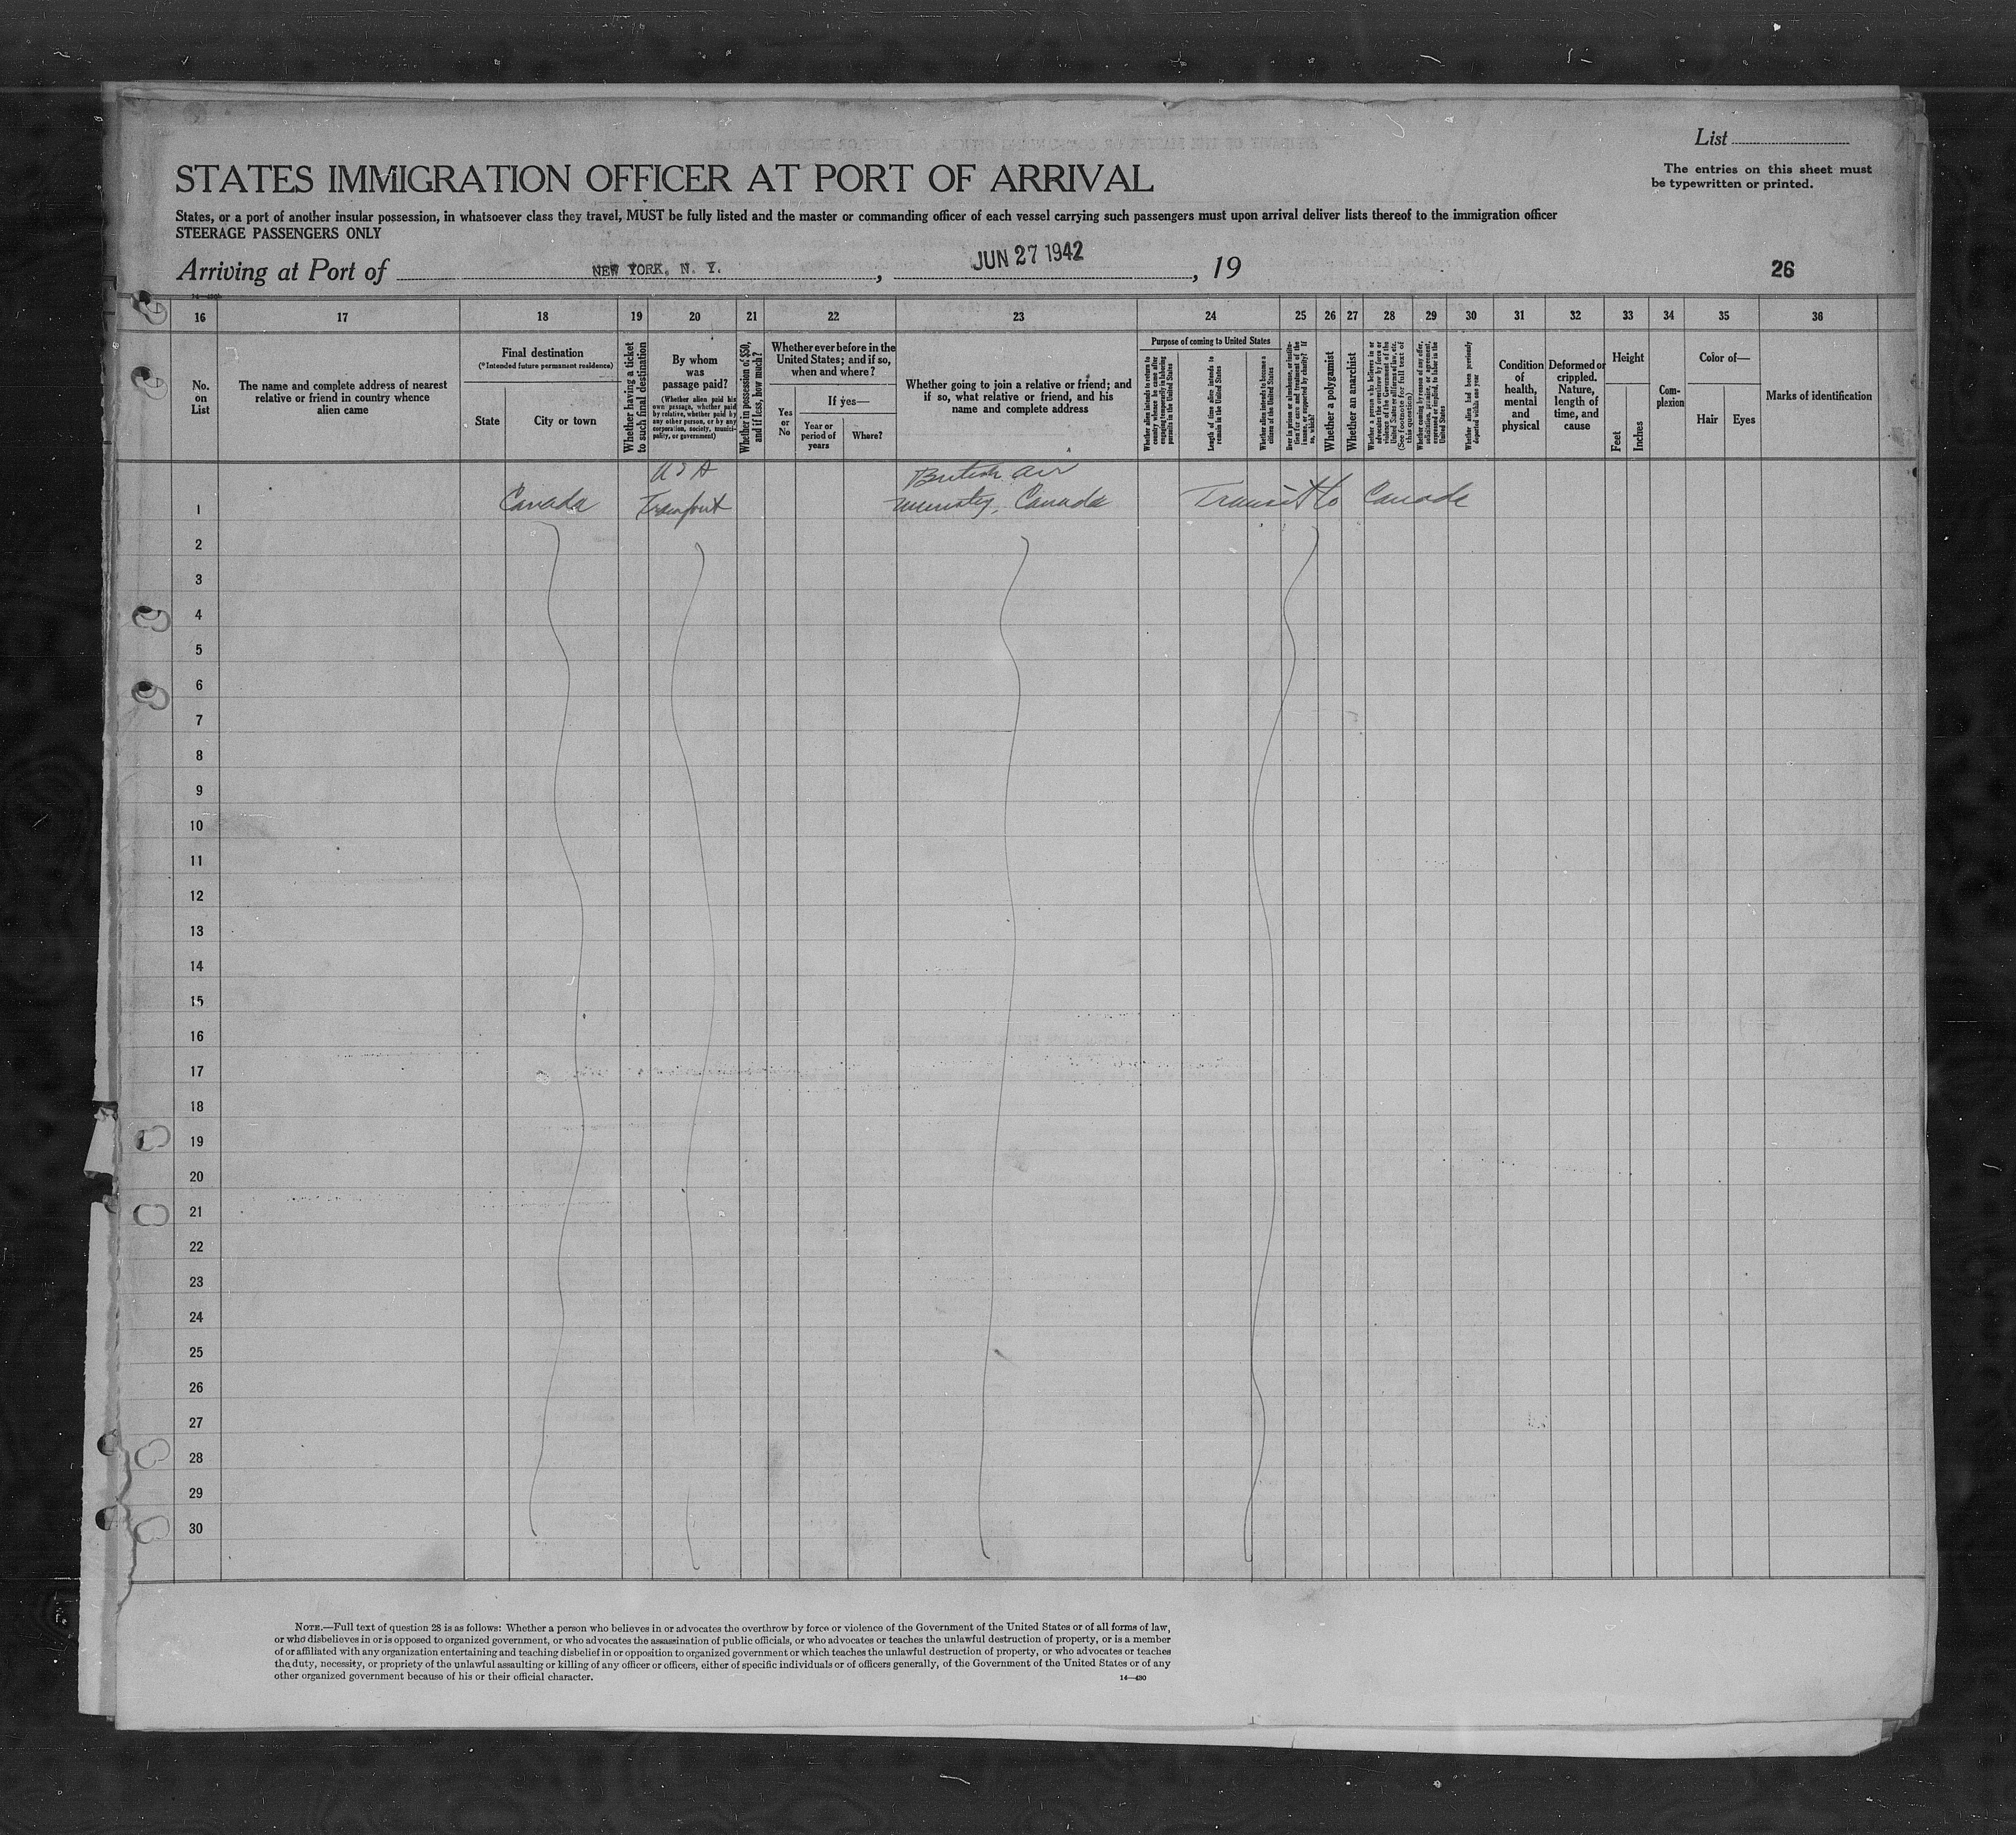 List
The entries on this sheet must
be typewritten or printed.
STATES IMMIGRATION OFFICER AT PORT OF ARRIVAL
States, or a port of another insular possession, in whatsoever class they travel, MUST be fully listed and the master or commanding officer of each vessel carrying such passengers must upon arrival deliver lists thereof to the immigration officer
STEERAGE PASSENGERS ONLY
Arriving at Port of NEW YORK, N. Y., JUN 27 1942, 19
26
16 17 18 19 20 21 22 23 24 25 26 27 28 29 30 31 32 33 34 35 36
No.
on
List
The name and complete address of nearest
relative or friend in country whence
alien came
Final destination
(*Intended future permanent residence)
State
City or town
Whether having a ticket
to such final destination
By whom
was
passage paid?
(Whether alien paid his
own passage, whether paid
by relative, whether paid by
any other person, or by any
corporation, society, munici-
pality, or government)
Whether in possession of $50,
and if less, how much?
Whether ever before in the
United States; and if so,
when and where?
Yes
or
No
If yes—
Year or
period of
years
Where?
Whether going to join a relative or friend; and
if so, what relative or friend, and his
name and complete address
Purpose of coming to United States
Whether alien intends to return to
country whence he came after
engaging temporarily in laboring
pursuits in the United States
Length of time alien intends to
remain in the United States
Whether alien intends to become a
citizen of the United States
Ever in prison or almshouse, or institu-
tion for care and treatment of the
insane, or supported by charity? If
so, which?
Whether a polygamist
Whether an anarchist
Whether a person who believes in or
advocates the overthrow by force or
violence of the Government of the
United States or all forms of law, etc.
(See footnote for full text of
this question)
Whether coming by reason of any offer,
solicitation, promise, or agreement,
expressed or implied, to labor in the
United States
Whether alien had been previously
deported within one year
Condition
of
health,
mental
and
physical
Deformed or
crippled.
Nature,
length of
time, and
cause
Height
Feet
Inches
Com-
plexion
Color of—
Hair
Eyes
Marks of identification
USA British Air
1 Canada Transport Ministry, Canada Transit to Canada
2
3
4
5
6
7
8
9
10
11
12
13
14
15
16
17
18
19
20
21
22
23
24
25
26
27
28
29
30
NOTE.—Full text of question 28 is as follows: Whether a person who believes in or advocates the overthrow by force or violence of the Government of the United States or of all forms of law,
or who disbelieves in or is opposed to organized government, or who advocates the assassination of public officials, or who advocates or teaches the unlawful destruction of property, or is a member
of or affiliated with any organization entertaining and teaching disbelief in or opposition to organized government or which teaches the unlawful destruction of property, or who advocates or teaches
the duty, necessity, or propriety of the unlawful assaulting or killing of any officer or officers, either of specific individuals or of officers generally, of the Government of the United States or of any
other organized government because of his or their official character.
14—430